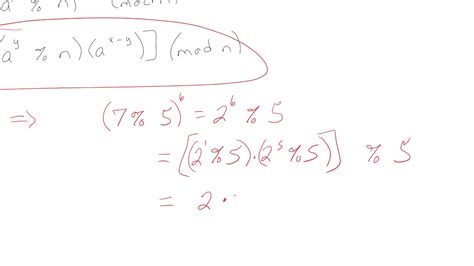 a % n) (mod n)
a^y % n)(a^{x-y})] (mod n)
=> (7 % 5)^6 = 2^6 % 5
= [(2^1 % 5)·(2^5 % 5)] % 5
= 2 ·